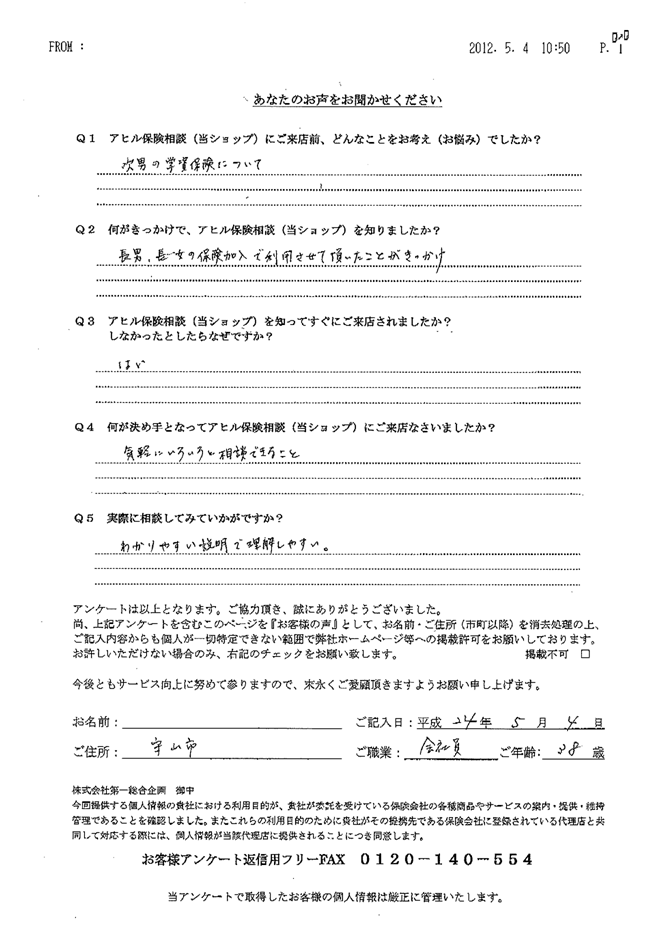 FROM :
2012. 5. 4 10:50
P. 1
あなたのお声をお聞かせください
Q1 アヒル保険相談（当ショップ）にご来店前、どんなことをお考え（お悩み）でしたか？
次男の学資保険について
Q2 何がきっかけで、アヒル保険相談（当ショップ）を知りましたか？
長男、長女の保険加入で利用させて頂いたことがきっかけ
Q3 アヒル保険相談（当ショップ）を知ってすぐにご来店されましたか？
しなかったとしたらなぜですか？
はい
Q4 何が決め手となってアヒル保険相談（当ショップ）にご来店なさいましたか？
気軽にいろいろと相談できること
Q5 実際に相談してみていかがですか？
わかりやすい説明で理解しやすい。
アンケートは以上となります。ご協力頂き、誠にありがとうございました。
尚、上記アンケートを含むこのページを『お客様の声』として、お名前・ご住所（市町以降）を消去処理の上、
ご記入内容からも個人が一切特定できない範囲で弊社ホームページ等への掲載許可をお願いしております。
お許しいただけない場合のみ、右記のチェックをお願い致します。 掲載不可 □
今後ともサービス向上に努めて参りますので、末永くご愛顧頂きますようお願い申し上げます。
お名前： ご記入日：平成 24年 5 月 4 日
ご住所： 守山市 ご職業： 会社員 ご年齢: 38 歳
株式会社第一総合企画 御中
今回提供する個人情報の貴社における利用目的が、貴社が委託を受けている保険会社の各種商品やサービスの案内・提供・維持
管理であることを確認しました。またこれらの利用目的のために貴社がその提携先である保険会社に登録されている代理店と共
同して対応する際には、個人情報が当該代理店に提供されることにつき同意します。
お客様アンケート返信用フリーFAX 0120－140－554
当アンケートで取得したお客様の個人情報は厳正に管理いたします。